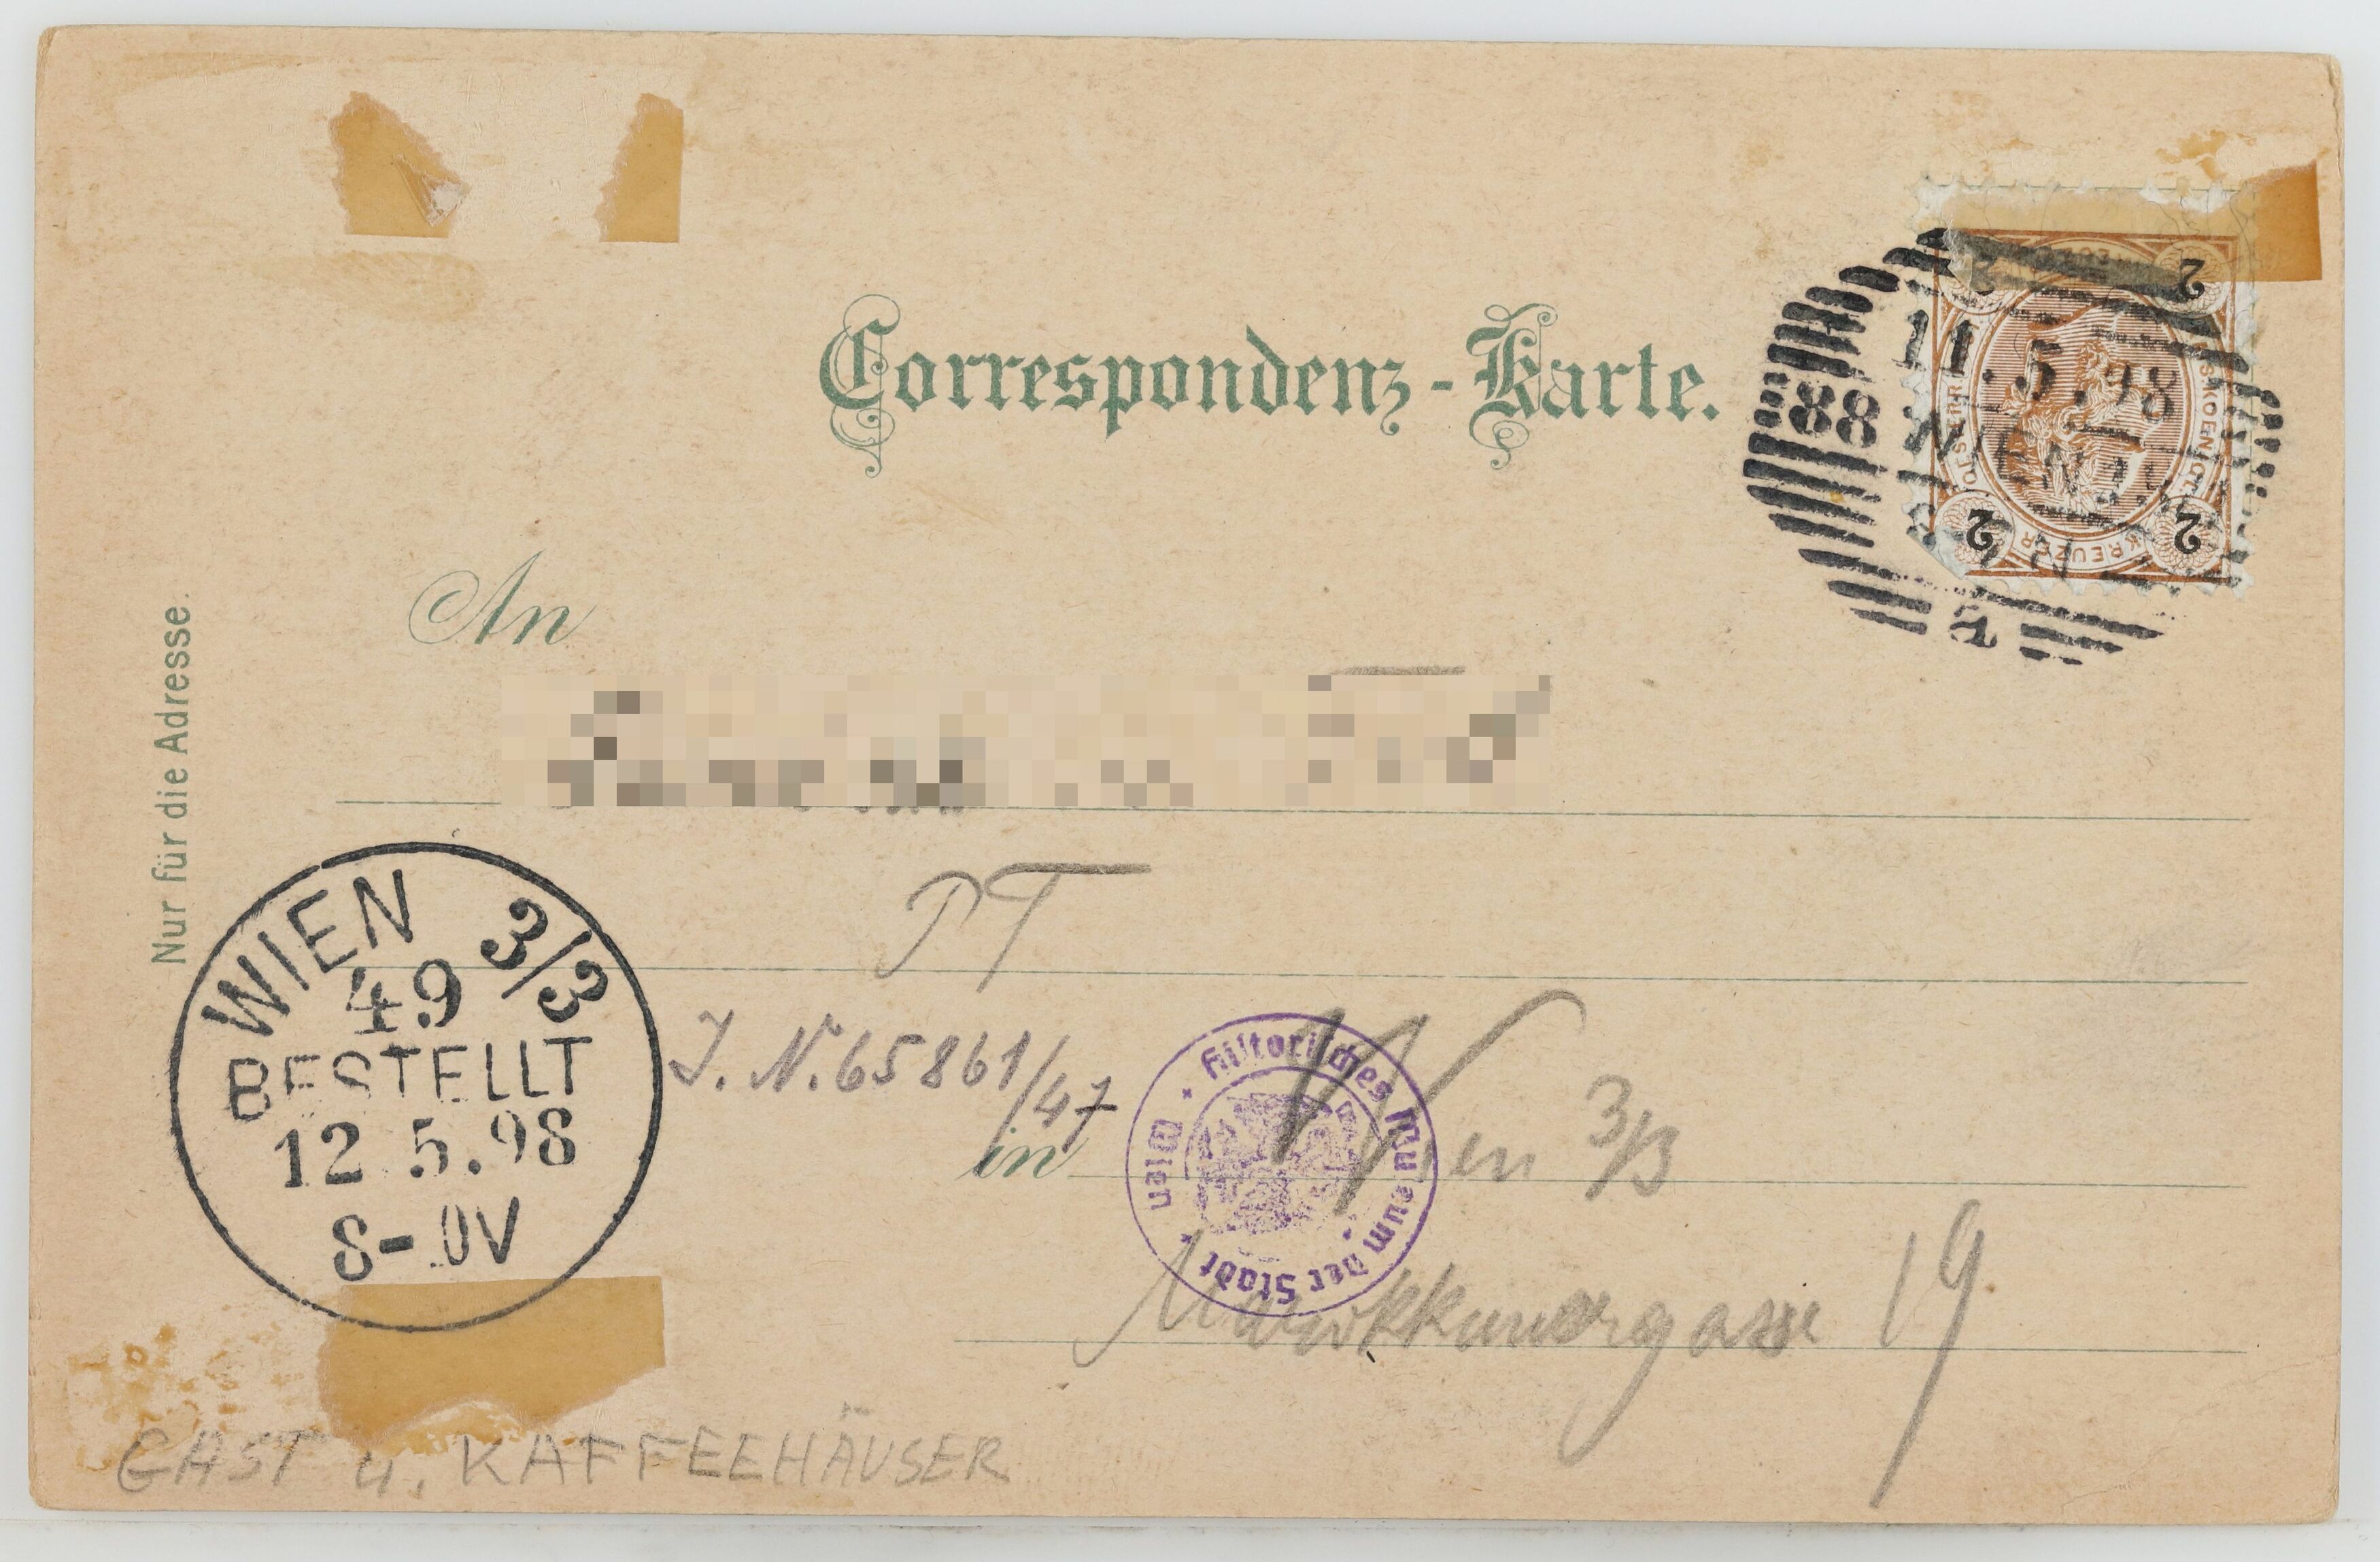 Correspondenz-Karte.
2 2
11.5.98
88
KREUZER
2 2
An
Nur für die Adresse.
PT
WIEN 3/3
49
BESTELLT
12 5.98
8-
J. N. 65861/47
Historisches Museum der Stadt Wien
in Wien 3/3
19
GAST u. KAFFEEHÄUSER